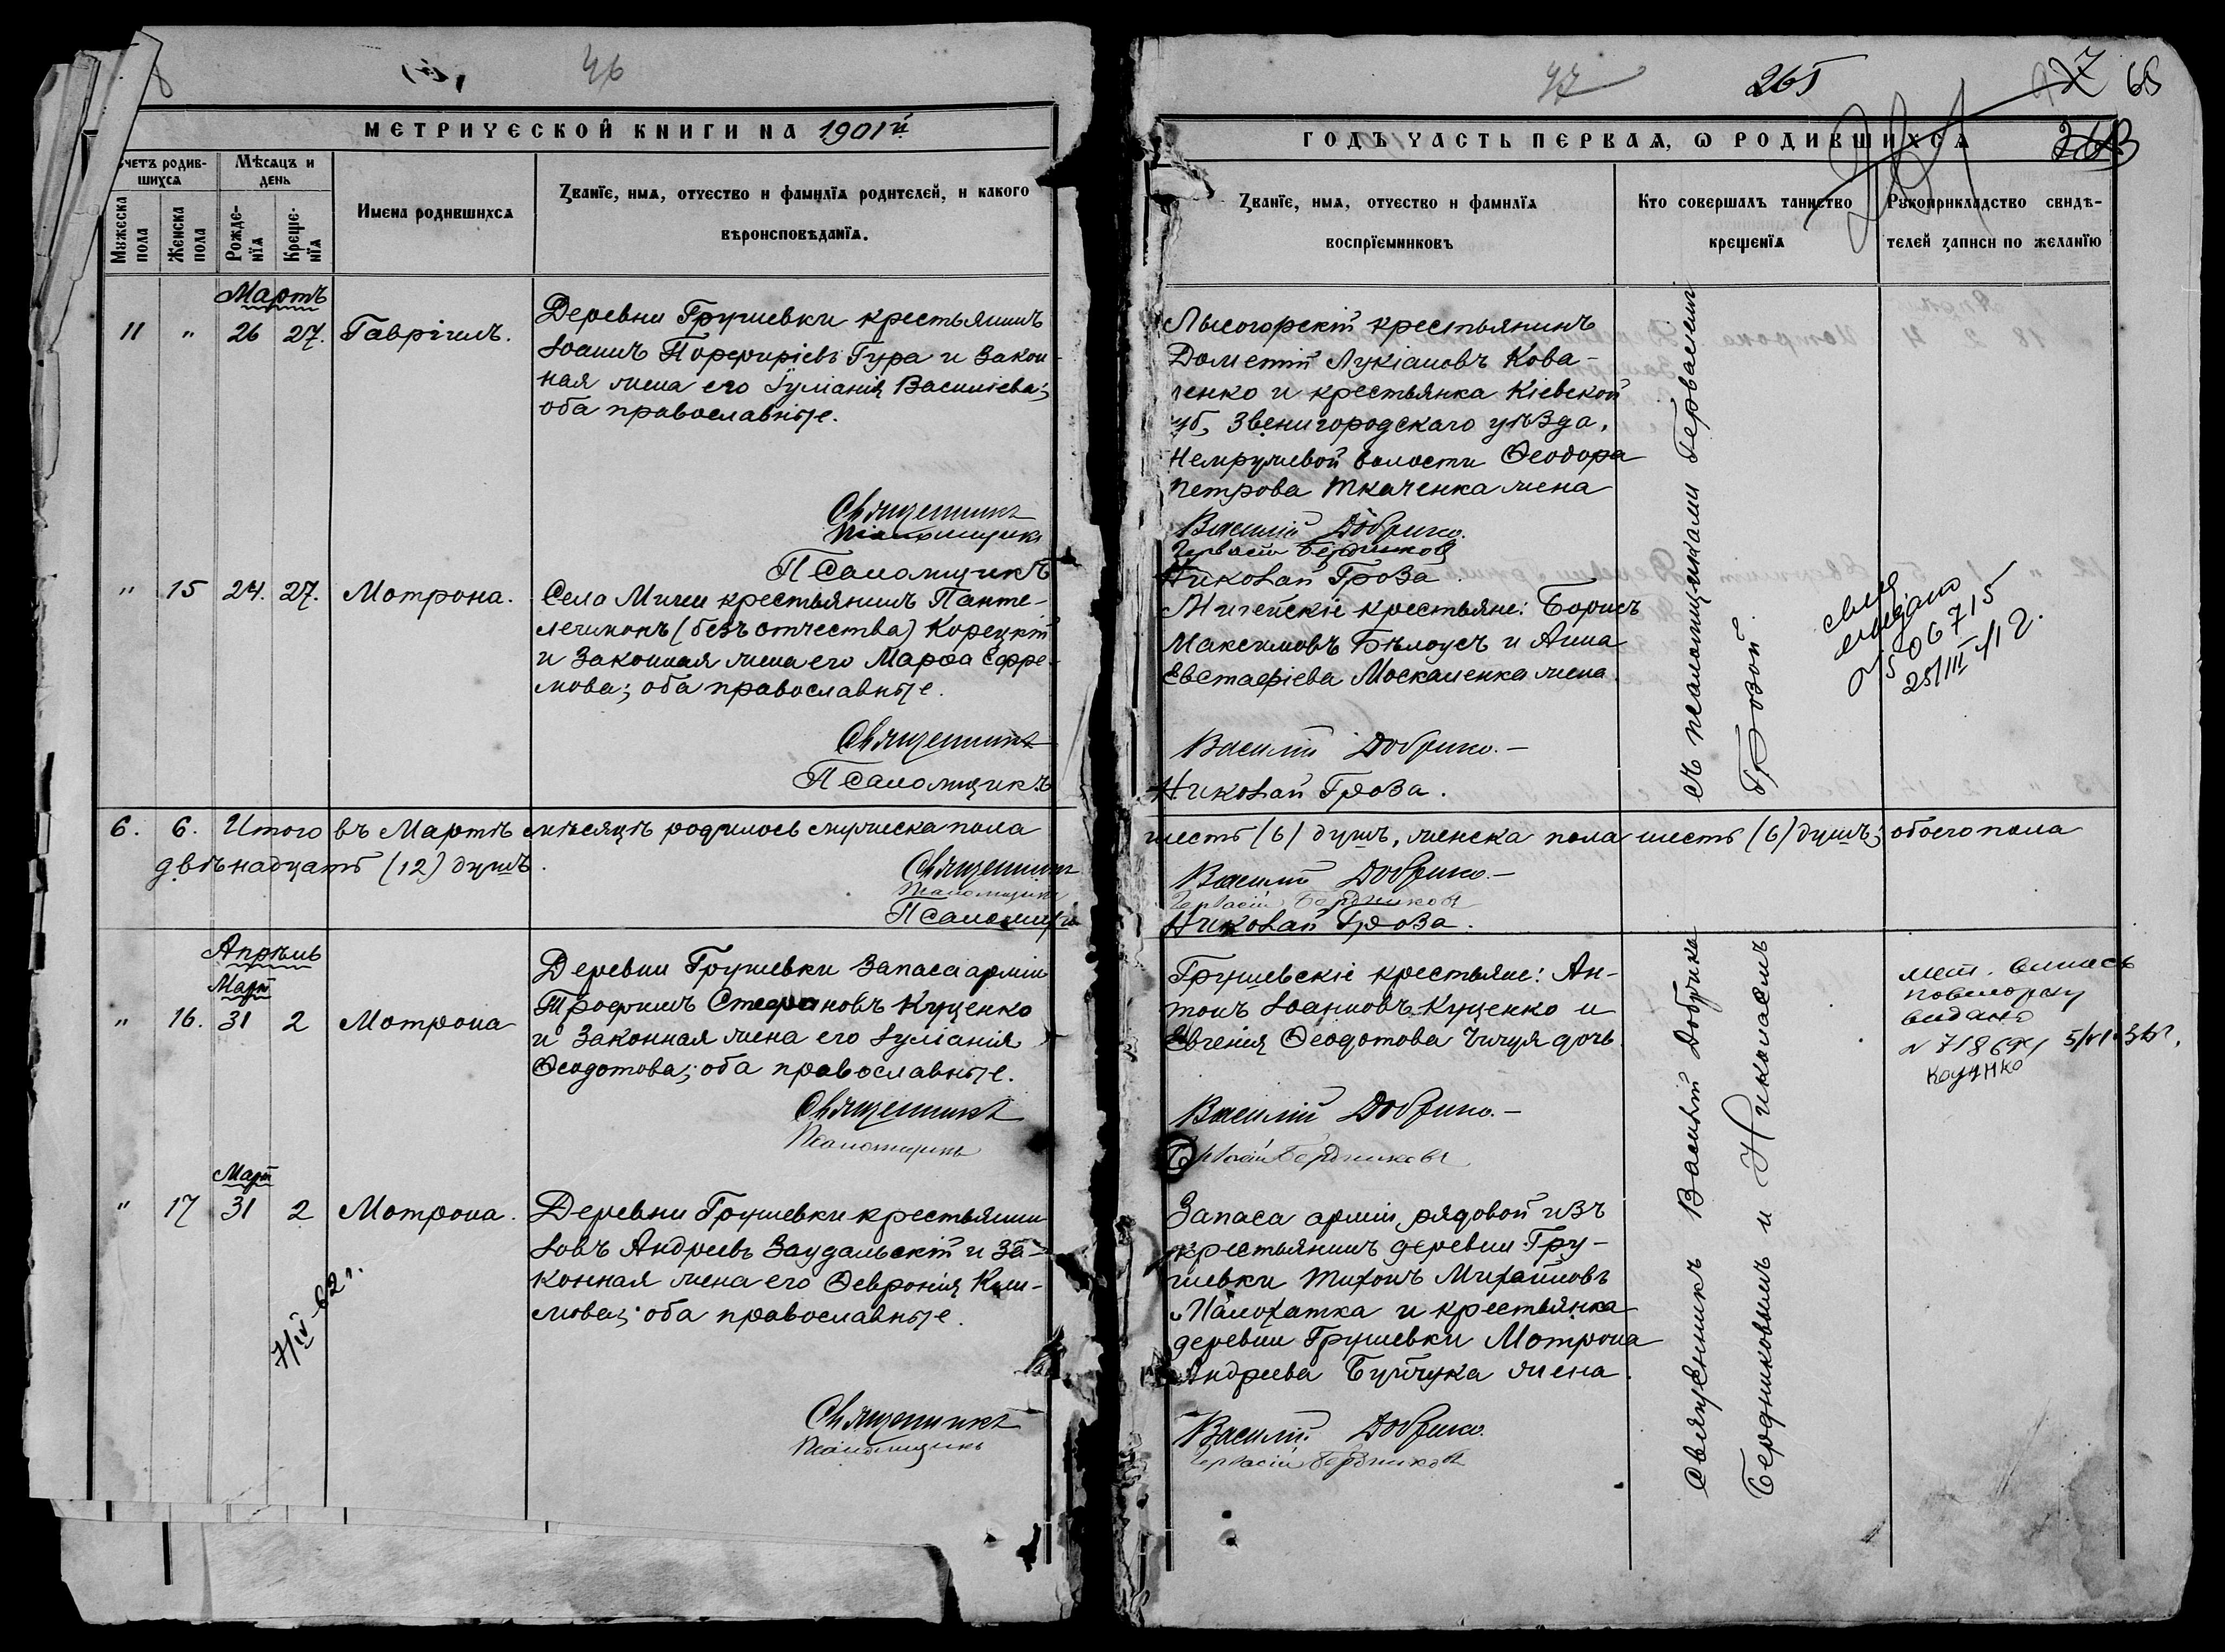 46
МЕТРИЧЕСКОЙ КНИГИ НА 1901й
Счетъ родившихся
Мѣсяцъ и день
Имена родившихся
Званіе, имя, отчество и фамилія родителей, и какого
вѣроисповѣданія.
Мужеска пола
Женска пола
Рожденія
Крещенія
Мартъ
11 " 26 27. Гавріилъ.
Деревни Грушевки крестьянинъ
Іоаннъ Порфиріевъ Гура и закон-
ная жена его Іуліанія Василіева;
оба православные.
Священникъ
Псаломщикъ
Псаломщикъ
" 15 24. 27. Мотрона.
Села Мигеи крестьянинъ Панте-
леимонъ (безъ отчества) Корецкій
и законная жена его Марѳа Ефре-
мова; оба православные.
Священникъ
Псаломщикъ
6. 6. Итого въ Мартѣ мѣсяцѣ родилось мужеска пола
двѣнадцать (12) душъ.
Священникъ
Псаломщикъ
Псаломщикъ
Апрѣль
Март
" 16. 31 2 Мотрона
Деревни Грушевки запаса арміи
Трофимъ Стефановъ Куценко
и законная жена его Іуліанія
Ѳеодотова; оба православные.
Священникъ
Псаломщикъ
Март
" 17 31 2 Мотрона.
Деревни Грушевки крестьянин
Іовъ Андреевъ Заудальскій и за-
конная жена его Ѳевронія Кли-
мова; оба православные.
Священникъ
Псаломщикъ
47
265
68
ГОДЪ ЧАСТЬ ПЕРВАЯ, Ѡ РОДИВШИХСЯ
Званіе, имя, отчество и фамилія
воспріемниковъ
Кто совершалъ таинство
крещенія
Рукоприкладство свидѣ-
телей записи по желанію
Лысогорскій крестьянинъ
Дометій Лукіановъ Кова-
ленко и крестьянка Кіевской
губ, Звенигородскаго уѣзда,
Петрова Ткаченка жена
Василій Добрико.
Гервасій Бердниковъ
Николай Гроза.
Мигейскіе крестьяне: Борисъ
Максимовъ Бѣлоусъ и Анна
Евстафіева Москаленка жена.
Василій Добрико.-
Николай Гроза.
съ псаломщиками Гервасіемъ
Грозой.
506715
25/III
шесть (6) душъ, женска пола шесть (6) душъ; обоего пола
Василій Добрико.-
Гервасій Бердниковъ
Николай Гроза.
Грушевскіе крестьяне: Ан-
тонъ Іоанновъ Куценко и
Евгенія Ѳеодотова Чичуя дочь.
Василій Добрико.-
Гервасій Бердниковъ
видано
Запаса арміи рядовой изъ
крестьянинъ деревни Гру-
шевки Тихонъ Михайловъ
Малохатка и крестьянка
деревни Грушевки Мотрона
Андреева Буйчука жена.
Василій Добрико.
Гервасій Бердниковъ
Священникъ Василій Добрико
Бердниковымъ и Николаемъ